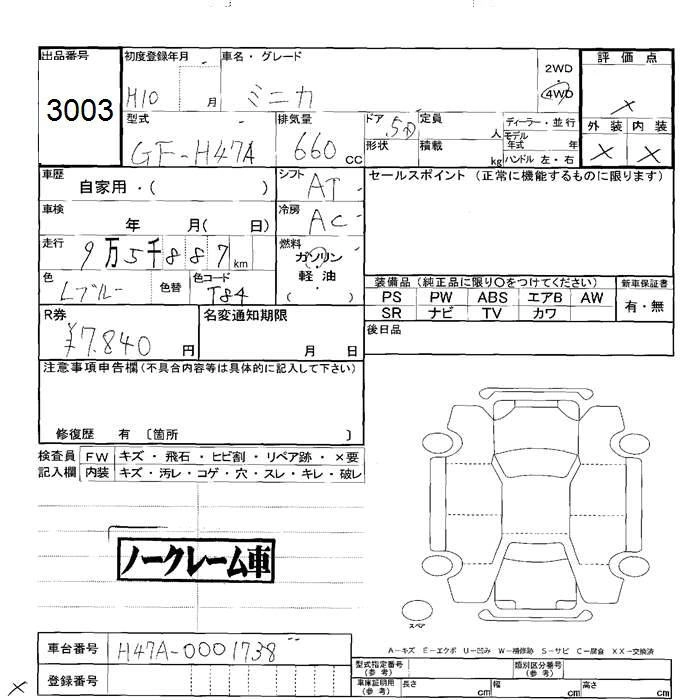 出品番号
3003
初度登録年月
H10 月
車名・グレード
ミニカ
2WD
・
4WD
評価点
×
外装 内装
× ×
型式
GF-H47A
排気量
660 cc
ドア
5D
形状
定員
人
積載
kg
ディーラー・並行
モデル年式 年
ハンドル 左・右
車歴
自家用・( )
シフト
AT
セールスポイント (正常に機能するものに限ります)
車検
年 月( 日)
冷房
AC
走行
9万5千887km
燃料
ガソリン
・
(軽・油)
色
Lブルー
色替
色コード
T84
装備品 (純正品に限り○をつけてください)
新車保証書
PS PW ABS エアB AW
SR ナビ TV カワ
有・無
R券
¥7.840 円
名変通知期限
月 日
後日品
注意事項申告欄(不具合内容等は具体的に記入して下さい)
修復歴 有 〔箇所 〕
検査員 FW キズ・飛石・ヒビ割・リペア跡・×要
記入欄 内装 キズ・汚レ・コゲ・穴・スレ・キレ・破レ
ノークレーム車
スペア
A-キズ E-エクボ U-凹み W-補修跡 S-サビ C-腐食 XX-交換済
車台番号 H47A-0001738
登録番号
型式指定番号(参考)
類別区分番号(参考)
車庫証明用(参考) 長さ cm 幅 cm 高さ cm
×